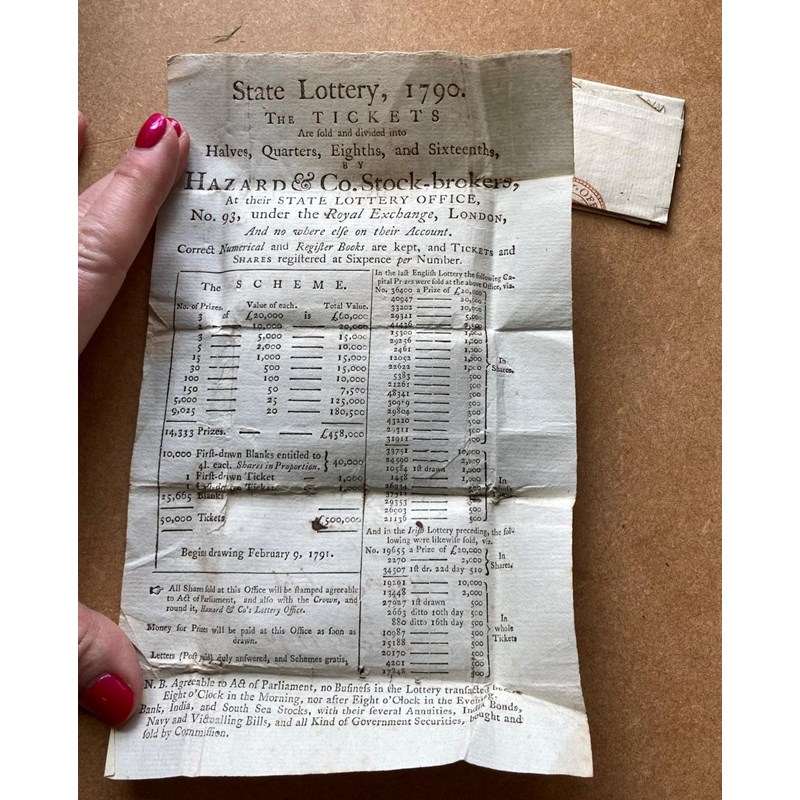 State Lottery, 1790.
THE TICKETS
Are ſold and divided into
Halves, Quarters, Eighths, and Sixteenths,
BY
HAZARD & Co. Stock-brokers,
At their STATE LOTTERY OFFICE,
No. 93, under the Royal Exchange, LONDON,
And no where elſe on their Account.
Correct Numerical and Regiſter Books are kept, and TICKETS and
SHARES regiſtered at Sixpence per Number.
The SCHEME.
No. of Prizes. Value of each. Total Value.
3 of £20,000 is £60,000
2 10,000 20,000
3 5,000 15,000
5 2,000 10,000
15 1,000 15,000
30 500 15,000
100 100 10,000
150 50 7,500
5,000 25 125,000
9,025 20 180,500
14,333 Prizes. £458,000
10,000 Firſt-drawn Blanks entitled to
4l. each. Shares in Proportion. } 40,000
1 Firſt-drawn Ticket 1,000
1 Ticket 1,000
25,665 Blanks
50,000 Tickets £500,000
Begins drawing February 9, 1791.
☞ All Shares ſold at this Office will be ſtamped agreeable
to Act of Parliament, and alſo with the Crown, and
round it, Hazard & Co's Lottery Office.
Money for Prizes will be paid at this Office as ſoon as
drawn.
Letters (Poſt paid) duly anſwered, and Schemes gratis,
In the laſt Engliſh Lottery the following Ca-
pital Prizes were ſold at the above Office, viz.
No. 36400 a Prize of £20,000
40947 20,000
33202 10,000
29311 5,000
15300 1,000
29256 1,000
2461 1,000
12052 1,000
22622 1,000
5383 500
21261 500
48341 500
30919 500
29804 500
43220 500
29311 500
31911 500
In
Shares.
33751 10,000
24590 2,000
10584 1ſt drawn 1,000
1458 1,000
29353 500
26903 500
21136 500
In
And in the Iriſh Lottery preceding, the fol-
lowing were likewiſe ſold, viz.
No. 19655 a Prize of £20,000
2270 2,000
34507 1ſt dr. 22d day 510
In
Shares.
19291 10,000
13448 2,000
27927 1ſt drawn 500
2663 ditto 10th day 500
880 ditto 16th day 500
10987 500
25188 500
20170 500
4201 500
In
whole
Tickets
N. B. Agreeable to Act of Parliament, no Buſineſs in the Lottery tranſacted before
Eight o'Clock in the Morning, nor after Eight o'Clock in the Evening.
Bank, India, and South Sea Stocks, with their ſeveral Annuities, India Bonds,
Navy and Victualling Bills, and all Kind of Government Securities, bought and
ſold by Commiſſion.